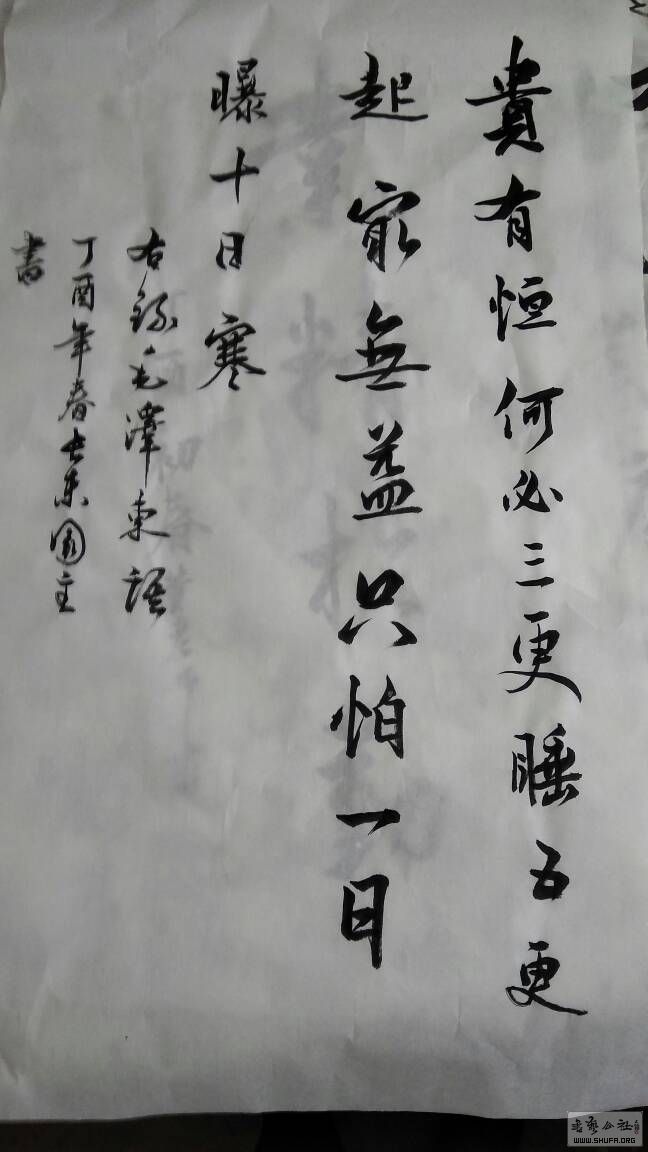 貴有恒何必三更睡五更
起最無益只怕一日
曝十日寒
右録毛澤東語
丁酉年春長樂園主
書
書藝公社
WWW.SHUFA.ORG